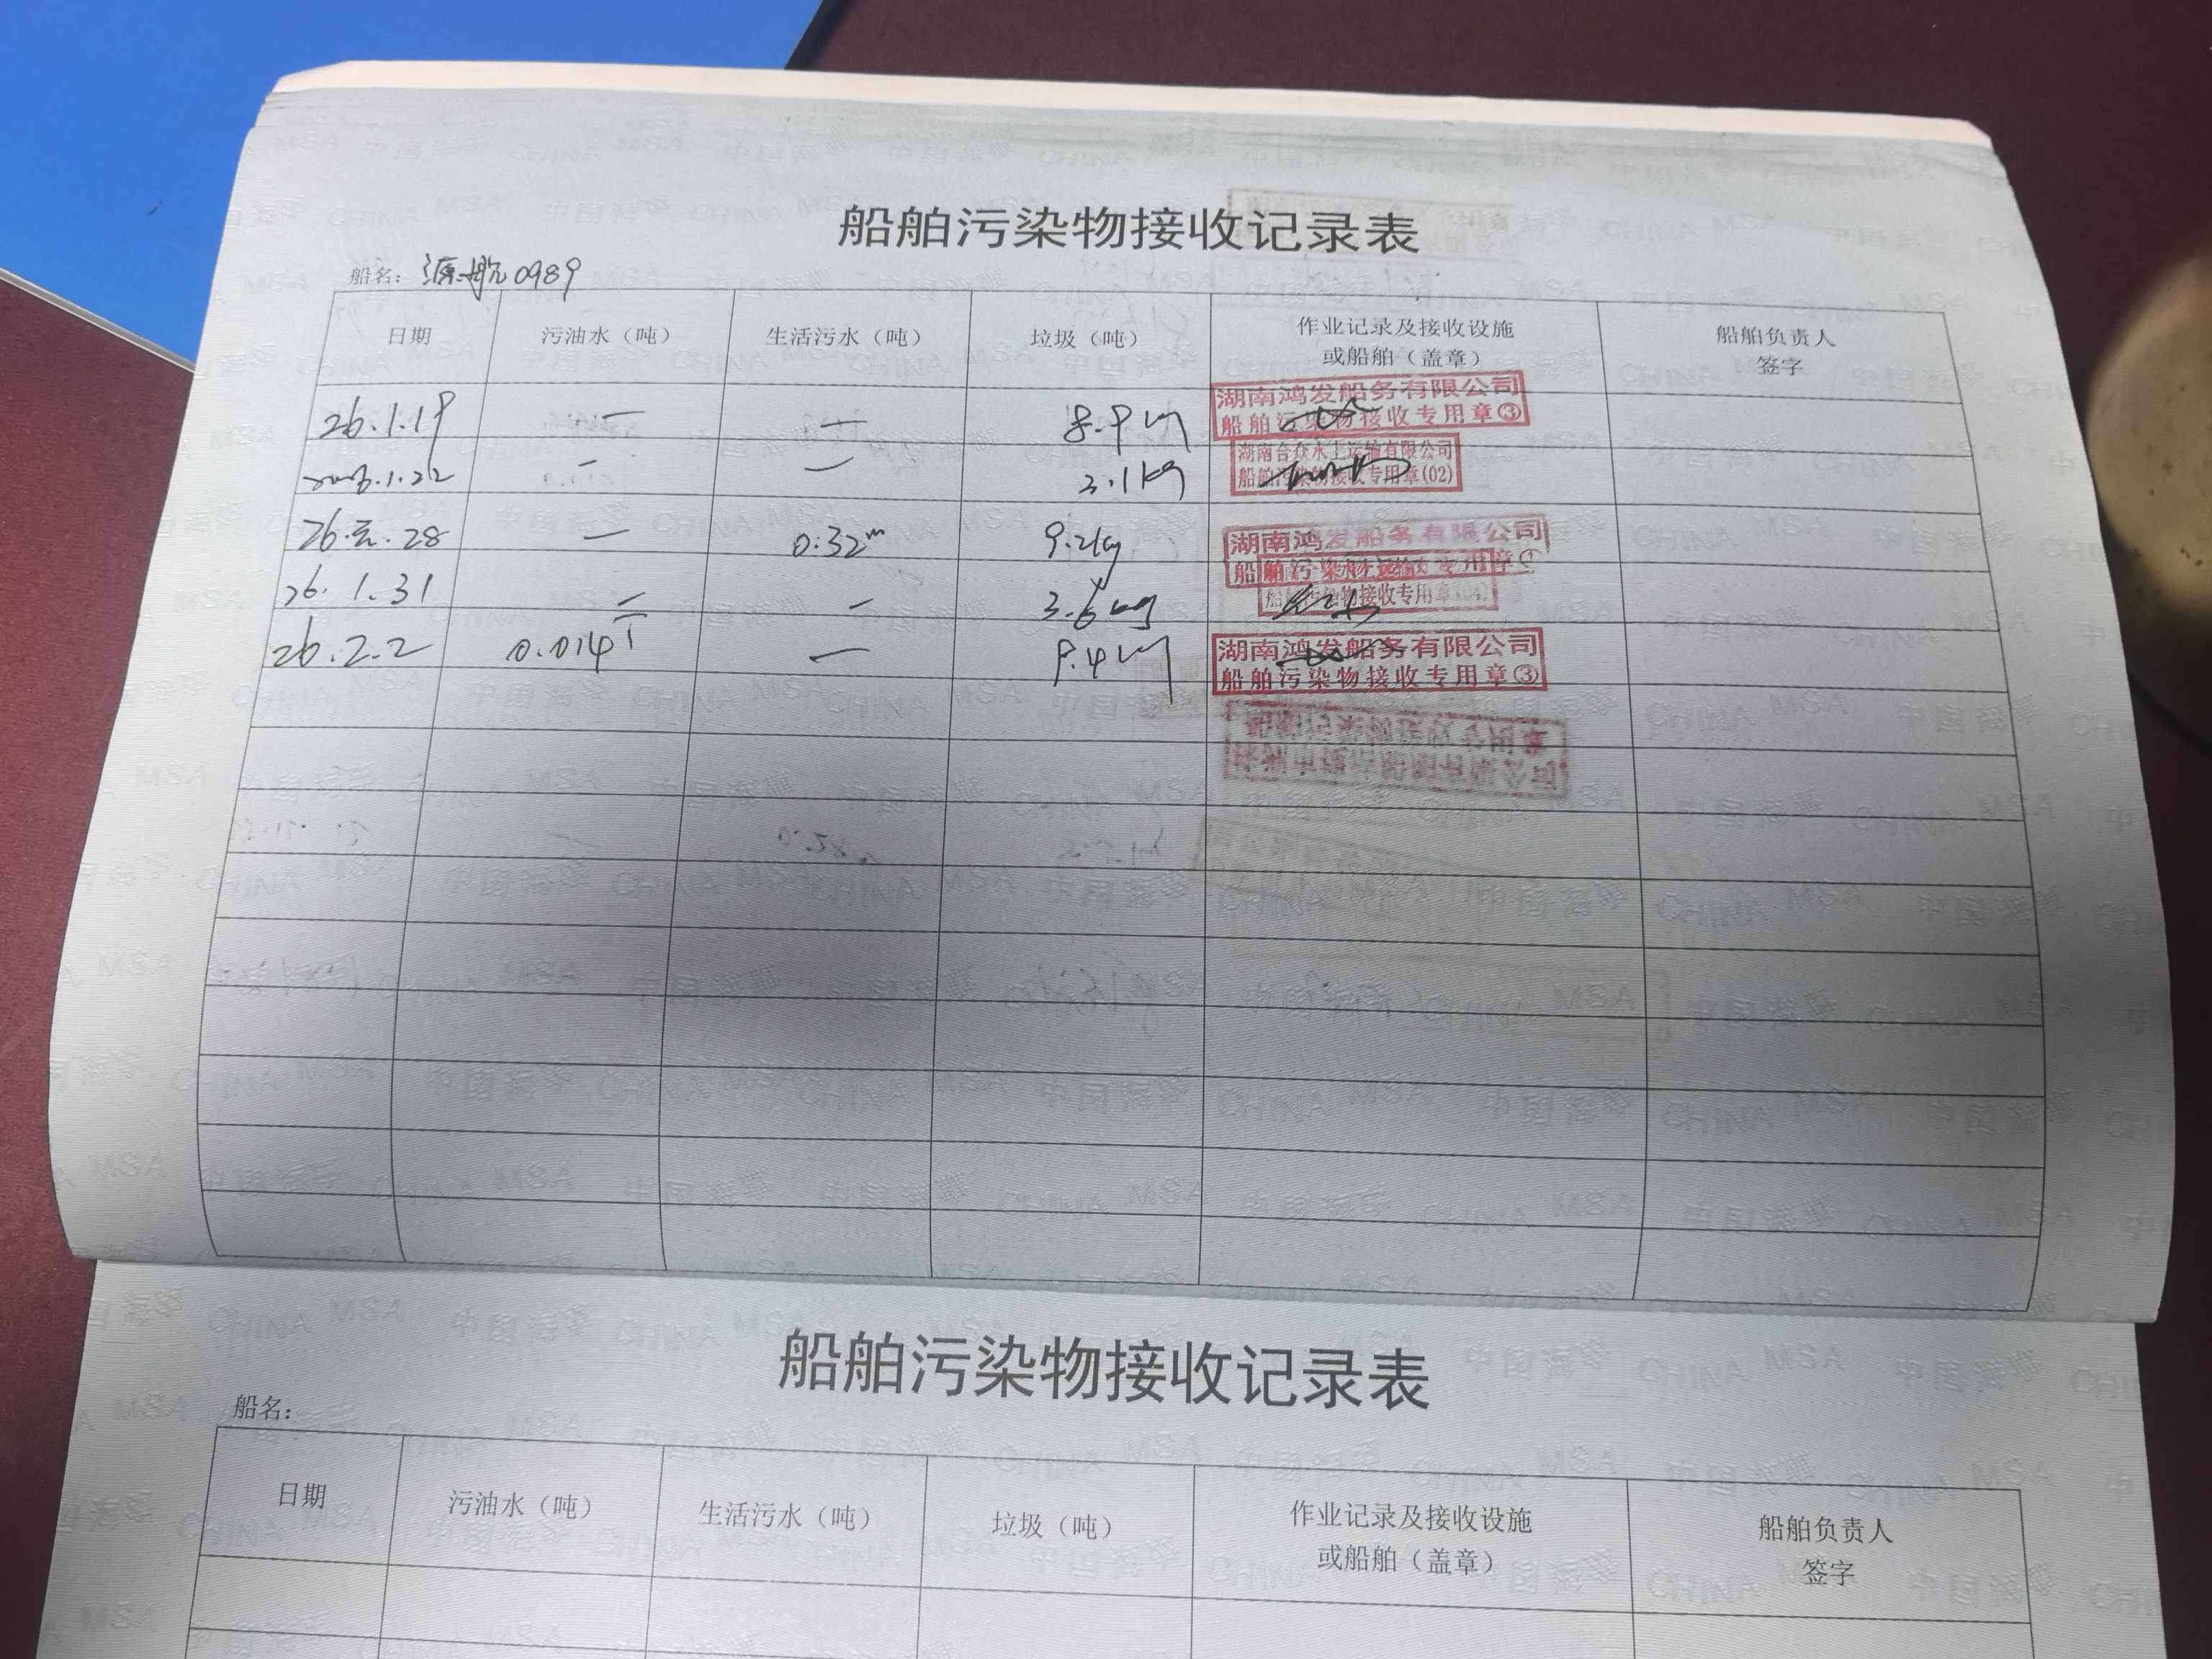 船舶污染物接收记录表
船名：源航0989
日期 污油水（吨） 生活污水（吨） 垃圾（吨） 作业记录及接收设施或船舶（盖章） 船舶负责人签字
26.1.19 — — 8.9kg 湖南鸿发船务有限公司
船舶污染物接收专用章③
2026.1.22 — — 3.1kg 湖南合众水上运输有限公司
船舶污染物接收专用章(02)
26.元.28 — 0.32 9.2kg 湖南鸿发船务有限公司
船舶污染物接收专用章①
26.1.31 — — 3.6kg
船舶污染物接收专用章
26.2.2 0.014T — 9.4kg 湖南鸿发船务有限公司
船舶污染物接收专用章③
船舶污染物接收记录表
船名：
日期 污油水（吨） 生活污水（吨） 垃圾（吨） 作业记录及接收设施或船舶（盖章） 船舶负责人签字